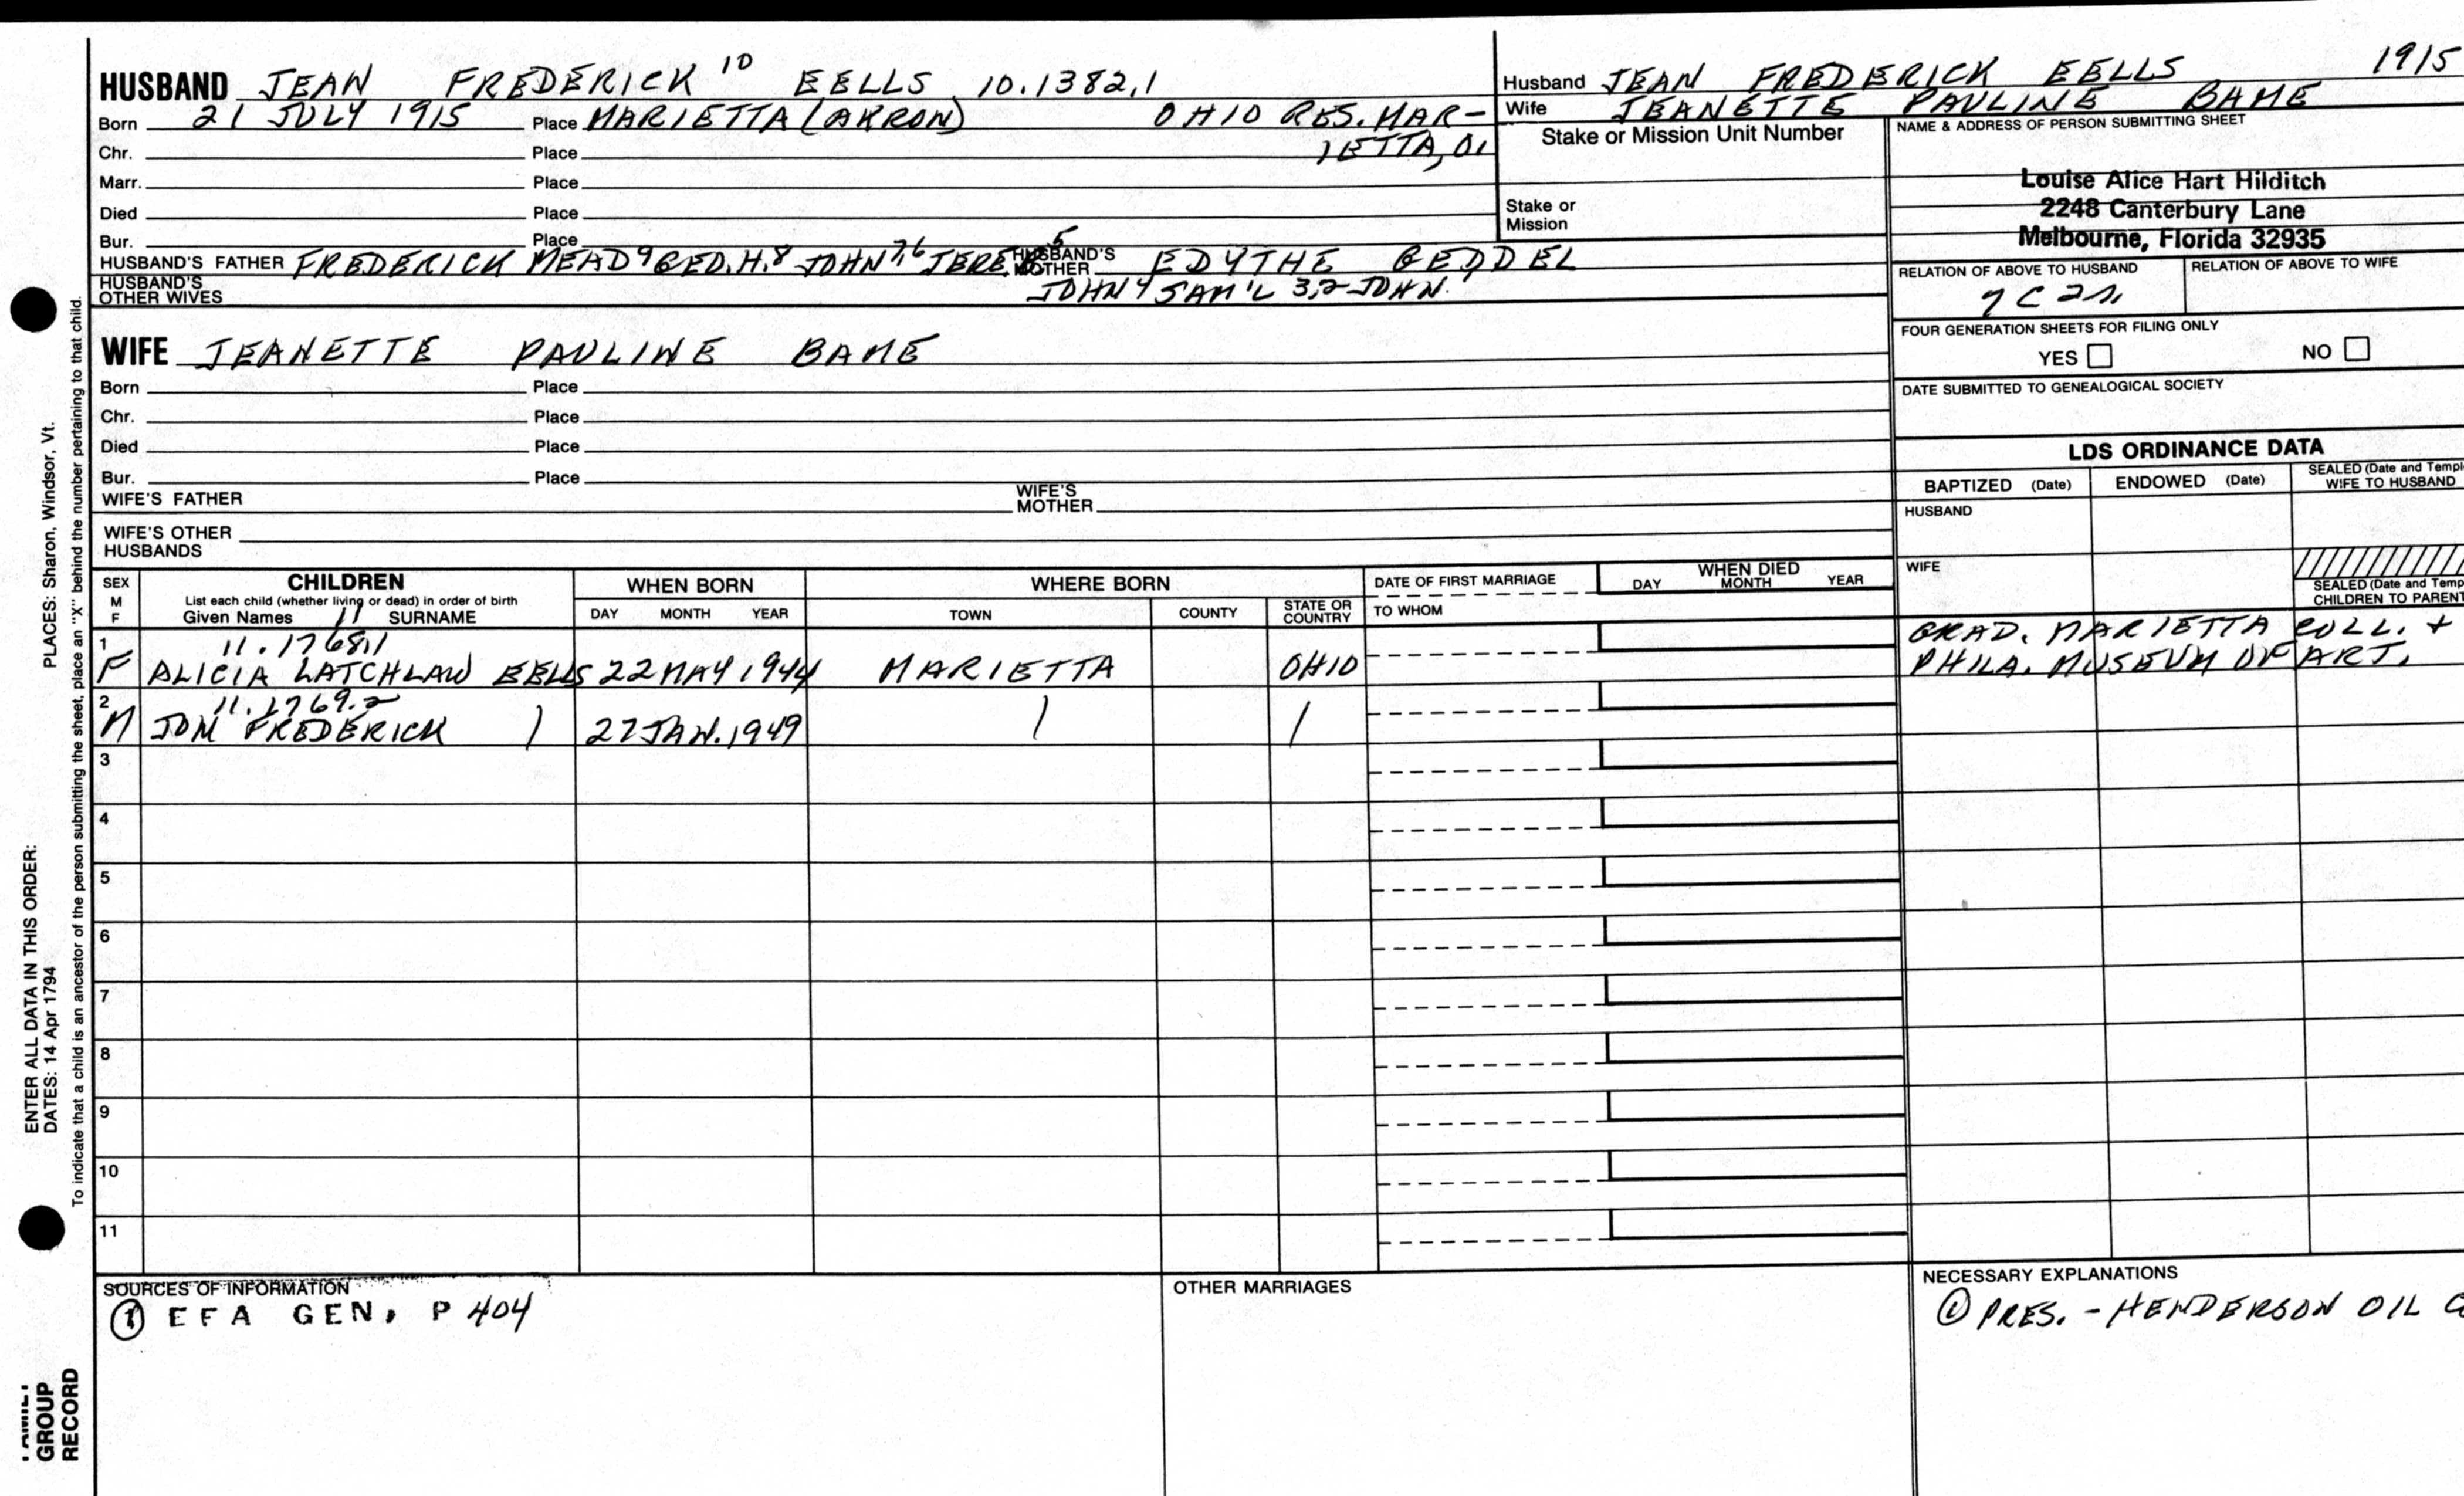 HUSBAND JEAN FREDERICK 10 EELLS 10.1382.1
Born 21 JULY 1915 Place MARIETTA (AKRON) OHIO RES. MAR-
Chr. Place IETTA, O.
Marr. Place
Died Place
Bur. Place
HUSBAND'S FATHER FREDERICK MEAD 9 GEO. H. 8 JOHN 7,6 JERE. 5 HUSBAND'S MOTHER EDYTHE GEDDEL
HUSBAND'S OTHER WIVES JOHN 4 SAM'L 3,2 JOHN 1
Husband JEAN FREDERICK EELLS 1915
Wife JEANETTE PAULINE BAME
Stake or Mission Unit Number
Stake or
Mission
NAME & ADDRESS OF PERSON SUBMITTING SHEET
Louise Alice Hart Hilditch
2248 Canterbury Lane
Melbourne, Florida 32935
RELATION OF ABOVE TO HUSBAND RELATION OF ABOVE TO WIFE
7C 2r.
FOUR GENERATION SHEETS FOR FILING ONLY
YES NO
DATE SUBMITTED TO GENEALOGICAL SOCIETY
WIFE JEANETTE PAULINE BAME
Born Place
Chr. Place
Died Place
Bur. Place
WIFE'S FATHER WIFE'S MOTHER
WIFE'S OTHER
HUSBANDS
LDS ORDINANCE DATA
BAPTIZED (Date) ENDOWED (Date) SEALED (Date and Templ
WIFE TO HUSBAND
HUSBAND
WIFE
SEALED (Date and Temp
CHILDREN TO PARENT
SEX
M
F
CHILDREN
List each child (whether living or dead) in order of birth
Given Names 11 SURNAME
WHEN BORN
DAY MONTH YEAR
WHERE BORN
TOWN COUNTY STATE OR COUNTRY
DATE OF FIRST MARRIAGE
TO WHOM
WHEN DIED
DAY MONTH YEAR
1 11.1768.1 GRAD. MARIETTA COLL. +
F ALICIA LATCHLAW EELLS 22 MAY 1944 MARIETTA OHIO PHILA. MUSEUM OF ART.
2 11.1769.2
M JON FREDERICK ) 27 JAN. 1949 ) /
3
4
5
6
7
8
9
10
11
SOURCES OF INFORMATION
① EFA GEN, P 404
OTHER MARRIAGES
NECESSARY EXPLANATIONS
① PRES. - HENDERSON OIL C
ENTER ALL DATA IN THIS ORDER:
DATES: 14 Apr 1794 PLACES: Sharon, Windsor, Vt.
To indicate that a child is an ancestor of the person submitting the sheet, place an "X" behind the number pertaining to that child.
FAMILY
GROUP
RECORD